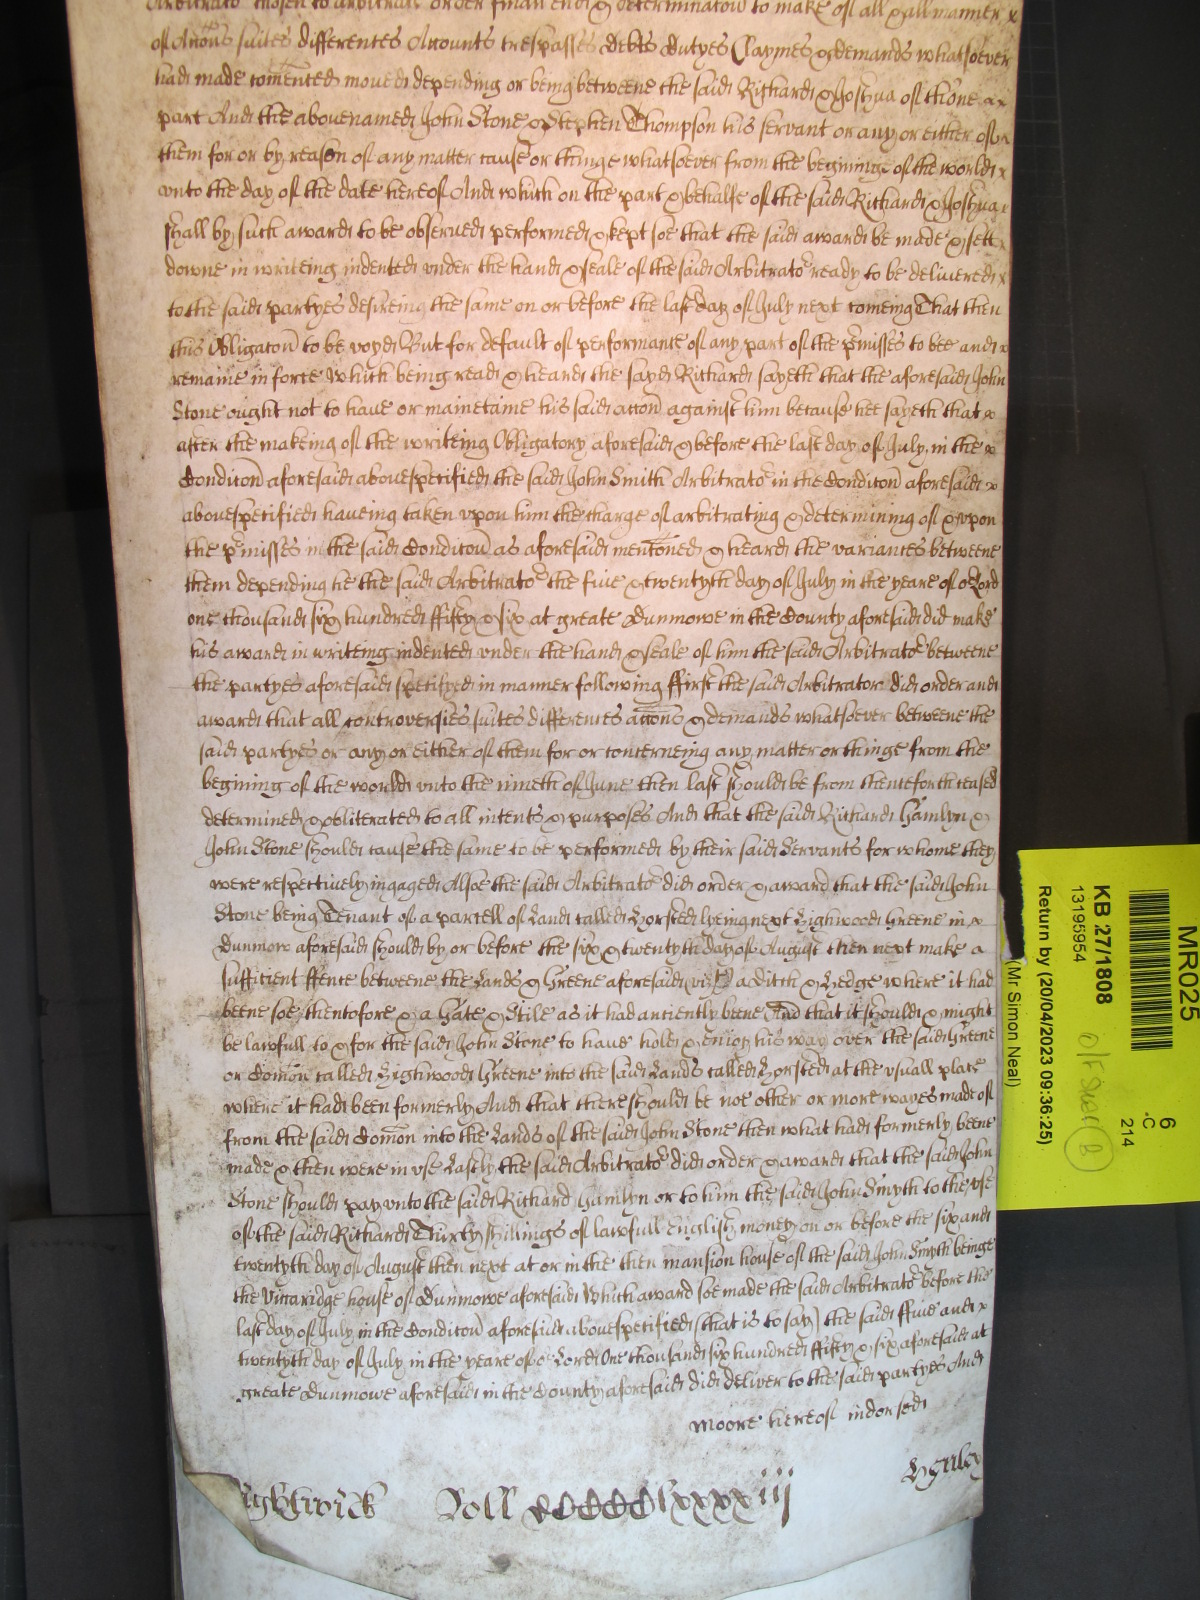 Arbitrator chosen to arbitrate order finall end & determinacõn to make of all & all manner x
of Accons suites differences Accounts trespasses debts dutyes Claymes & demands whatsoever
had made comenced moved depending or being betweene the said Richard & Joshua of thone x
part And the abovenamed John Stone & Stephen Thompson his servant or any or either of x
them for or by reason of any matter cause or thinge whatsoever from the begininge of the world x
vnto the day of the date hereof And which on the part & behalfe of the said Richard & Joshua x
shall by such award to be observed performed & kept soe that the said award be made & sett x
downe in writeing indented vnder the hand & seale of the said Arbitrator ready to be delivered x
to the said partyes desireing the same on or before the last day of July next comeing That then
this Obligacõn to be voyd But for default of performance of any part of the p̃misses to bee and x
remaine in force Which being read & heard the sayd Richard sayeth that the aforesaid John
Stone ought not to haue or mainetaine his said accõn against him because hee sayeth that x
after the makeing of the writeing Obligatory aforesaid & before the last day of July in the x
Condicõn aforesaid abouespecified the said John Smith Arbitrator in the Condicõn aforesaid x
abouespecified haueing taken vpon him the charge of arbitrating & determining of & vpon
the p̃misses in the said Condicõn as aforesaid mencõned & heard the variances betweene
them depending he the said Arbitrator the fiue & twentyth day of July in the yeare of or Lord
one thousand six hundred ffifty & six at greate Dunmowe in the County aforesaid did make
his award in writeing indented vnder the hand & seale of him the said Arbitrator betweene
the partyes aforesaid specifyed in manner following ffirst the said Arbitrator did order and
award that all controversies suites differences accõns & demands whatsoever betweene the
said partyes or any or either of them for or concerneing any matter or thinge from the
begining of the world vnto the nineth of June then last should be from thenceforth ceased
determined & obliterated to all intents & purposes And that the said Richard Hamlyn &
John Stone should cause the same to be performed by their said Servants for whome they
were respectively ingaged Alsoe the said Arbitrator did order & award that the said John
Stone being Tenant of a parcell of Land called Horsted lyeing next Highwood Greene in x
Dunmow aforesaid should by or before the six & twentyth day of August then next make a
sufficient ffence betweene the Lands & Greene aforesaid (vizt) a ditch & Hedge where it had
beene soe thentofore & a Gate & Stile as it had anciently beene And that it should & might
be lawfull to & for the said John Stone to haue hold & enioy his way over the said Greene
or Comõn called Highwood Greene into the said Lands called Horsted at the vsuall place
where it had been formerly And that there should be noe other or more wayes made of
from the said Comõn into the Lands of the said John Stone then what had formerly beene
made & then were in vse Lastly the said Arbitrator did order & award that the said John
Stone should pay vnto the said Richard Hamlyn or to him the said John Smyth to the vse
of the said Richard Thirty shillings of lawfull English money on or before the six and
twentyth day of August then next at or in the then mansion house of the said John Smyth beinge
the Viccaridge house of Dunmowe aforesaid Which award soe made the said Arbitrator before the
last day of July in the Condicõn aforesaid abouespecified (that is to say) the said ffiue and x
twentyth day of July in the yeare of or Lord One thousand six hundred ffifty & six aforesaid at
greate Dunmowe aforesaid in the County aforesaid did deliver to the said partyes And
Moore hereof indorsed
Henley
Roll lxxxxiij
MR025
6
-C
214
KB 27/1808
13195954
Return by (20/04/2023 09:36:25)
(Mr Simon Neal)
B